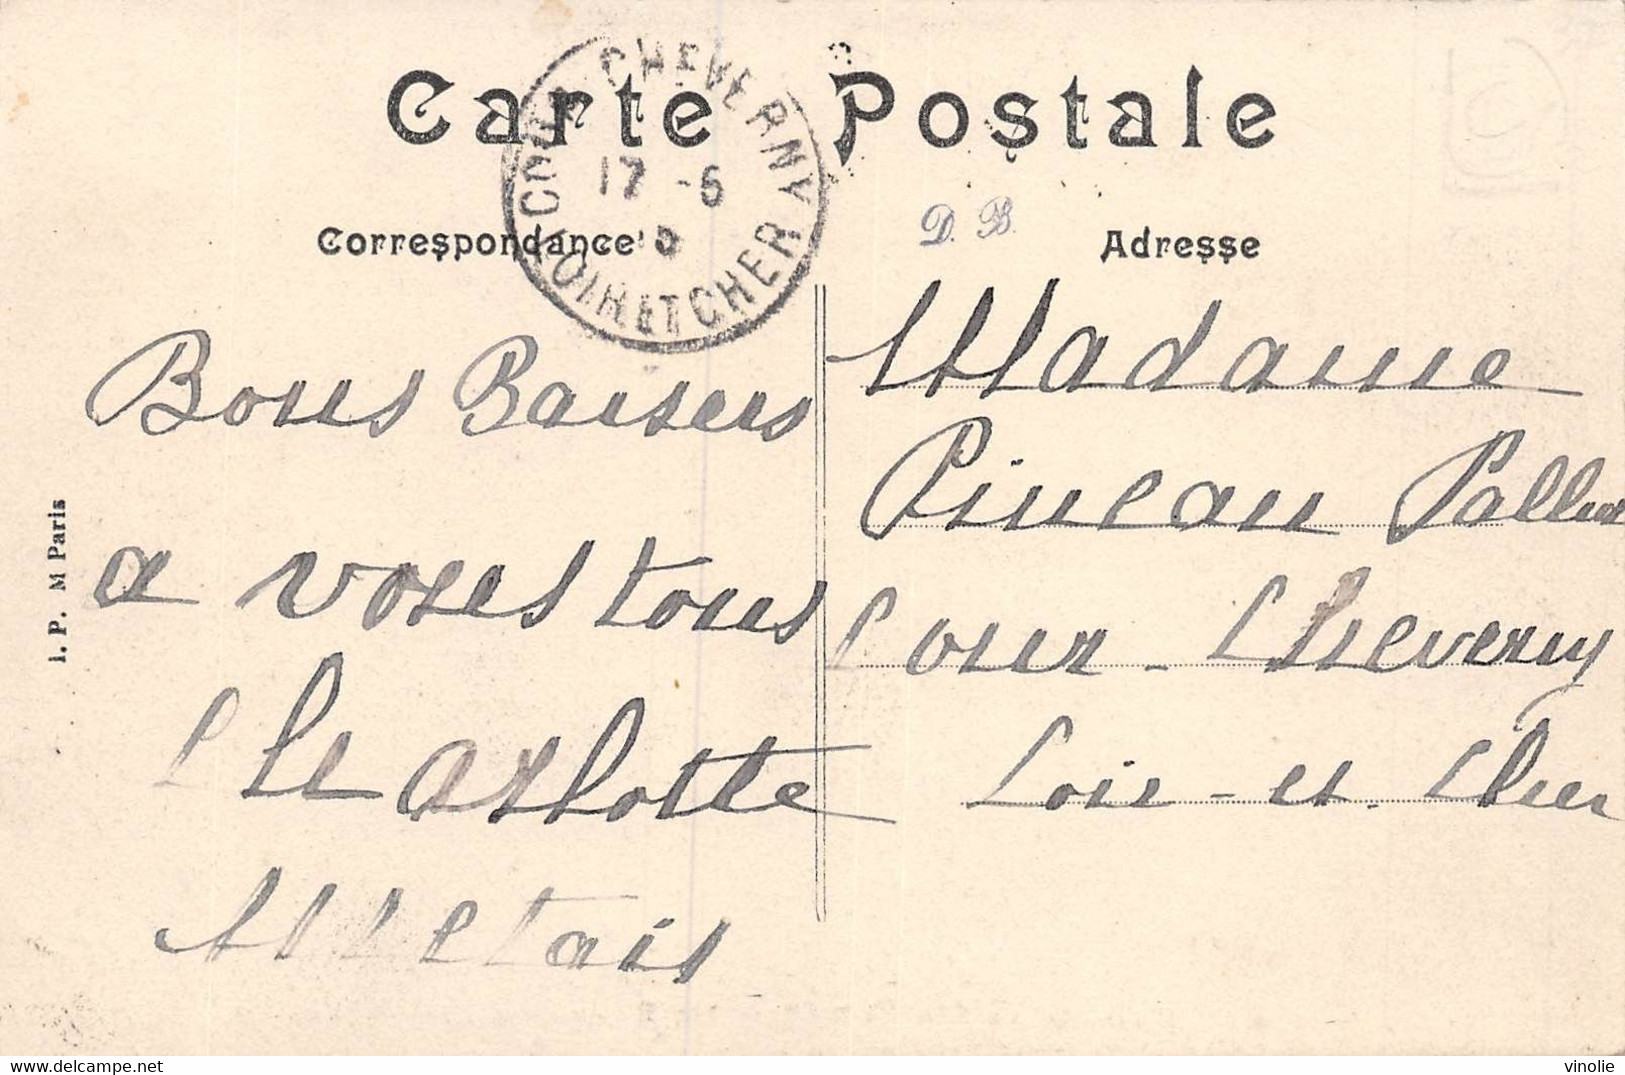 Carte Postale
COUR CHEVERNY
17 -6
LOIR ET CHER
Correspondance
D. B.
Adresse
Bons Baisers
a vous tous
Charlotte
Métais
Madame
Pineau
Cour-Cheverny
Loir-et-Cher
I. P. M Paris
vinolie